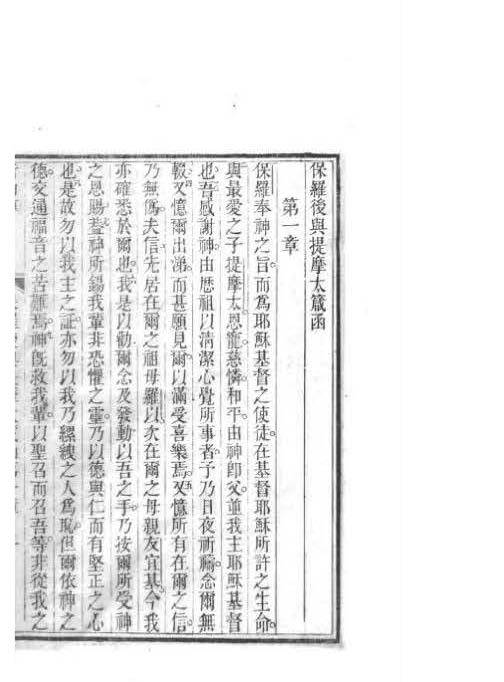 保羅後與提摩太箴函
第一章
保羅奉神之旨而爲耶穌基督之使徒在基督耶穌所許之生命
與最愛之子提摩太恩寵慈憐和平由神即父並我主耶穌基督
也吾感謝神由歷祖以清潔心覺所事者予乃日夜祈禱念爾無
輟又憶爾出涕而甚願見爾以滿受喜樂焉又憶所有在爾之信
乃無僞夫信先居在爾之祖母羅以次在爾之母親友宜基今我
亦確悉於爾也我是以勸爾念及發動以吾之手乃按爾所受神
之恩賜蓋神所錫我輩非恐懼之靈乃以德與仁而有堅正之心
也是故勿以我主之証亦勿以我乃縲絏之人爲恥但爾依神之
德交通福音之苦難焉神旣救我輩以聖召而召吾等非從我之